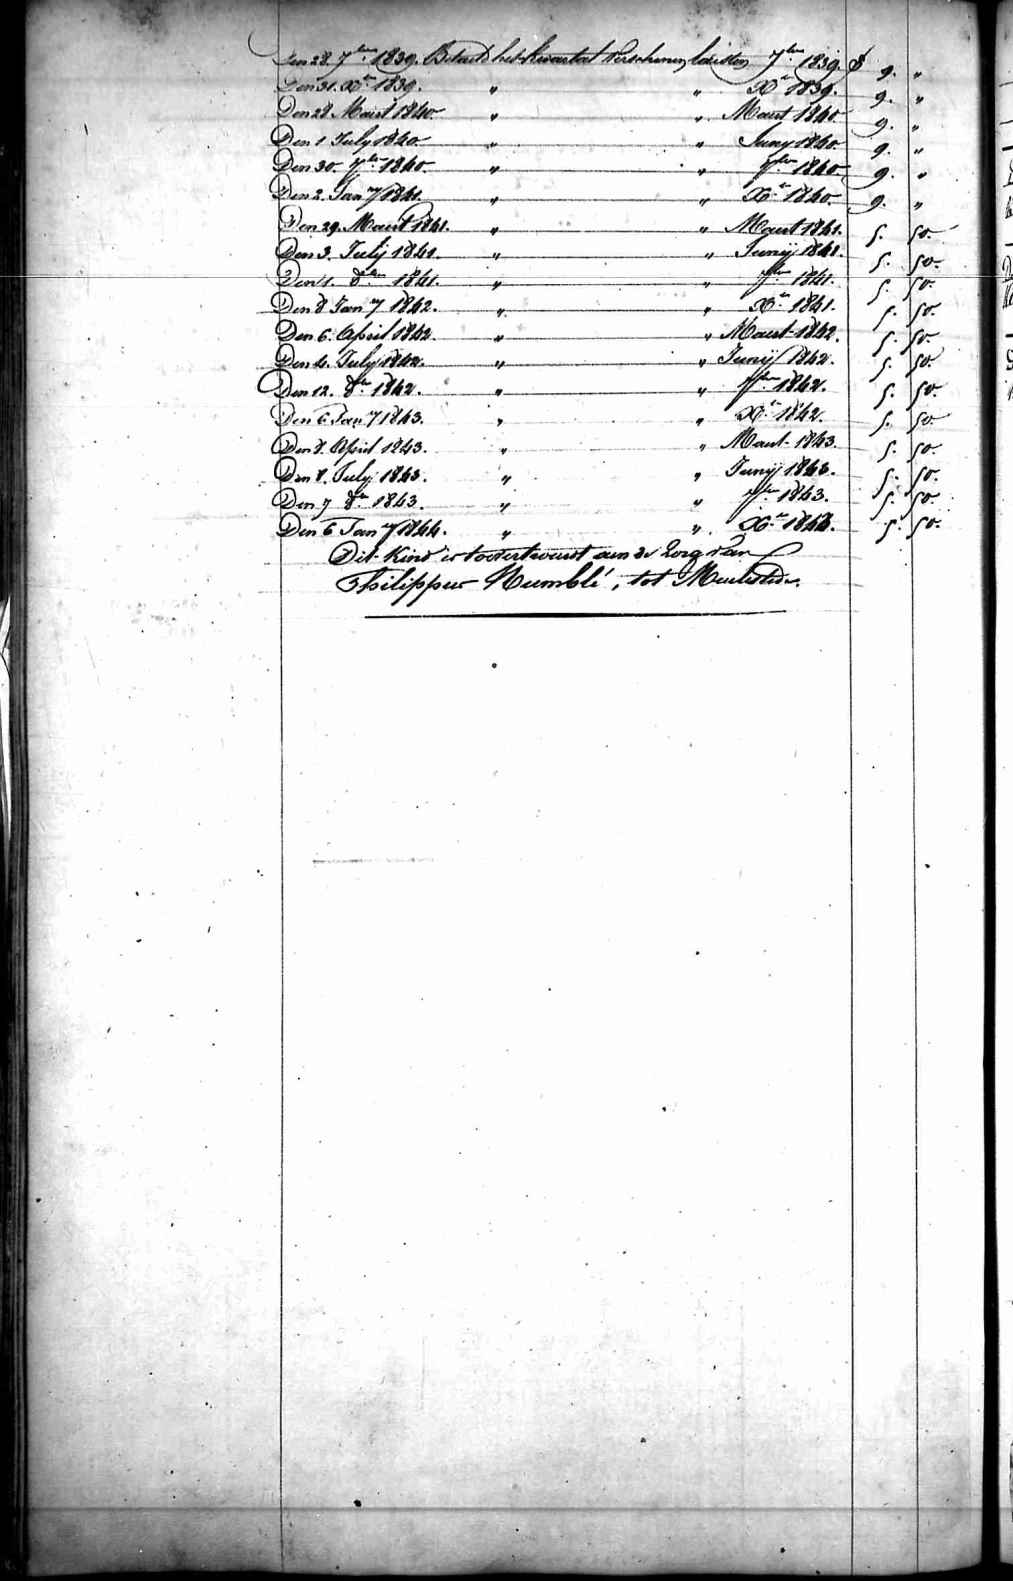 Den 28. 7ber 1839. Betaald het kwartaal verschenen laatsten 7ber 1839. f 9. "
Den 31. Xr 1839. " " Xr 1839. 9. "
Den 28 Maart 1840. " " Maart 1840 9. "
Den 1 July 1840 " " Juny 1840 9. "
Den 30. 7ber 1840. " " 7ber 1840 9. "
Den 2. Jany 1841. " " Xr 1840 9. "
Den 29. Maart 1841. " " Maart 1841. 5. 50.
Den 3. July 1841. " " Junij 1841. 5. 50.
Den 1. 8ber 1841. " " 7ber 1841. 5. 50.
Den 8 Jany 1842. " " Xr 1841. 5. 50.
Den 6. April 1842. " " Maart 1842. 5. 50.
Den 4. July 1842. " " Junij 1842. 5. 50.
Den 12. 8r 1842. " " 7ber 1842. 5. 50.
Den 6 Jany 1843. " " Xr 1842. 5. 50.
Den 8. April 1843. " " Maart 1843. 5. 50.
Den 8. July 1843. " " Junij 1843. 5. 50.
Den 7 8r 1843. " " 7ber 1843. 5. 50.
Den 6 Jany 1844. " " Xr 1843. 5. 50.
Dit Kind is toevertrouwd aan de Zorg van
Philippus Numblé, tot Meulestede.